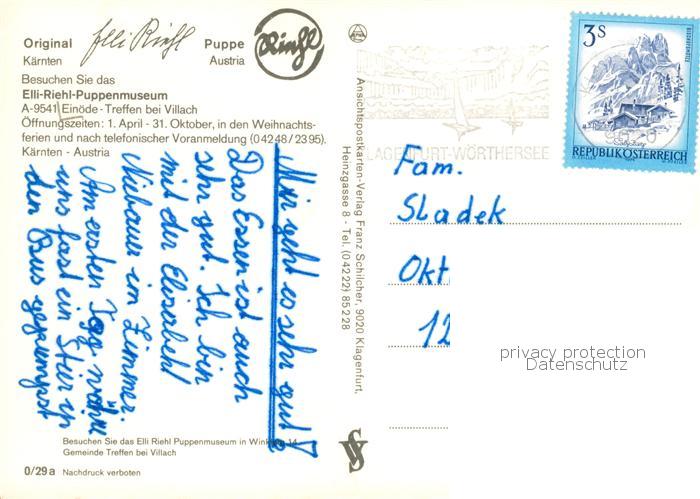 Original Elli Riehl Puppe Riehl
Kärnten Austria
Besuchen Sie das
Elli-Riehl-Puppenmuseum
A-9541 Einöde-Treffen bei Villach
Öffnungszeiten: 1. April - 31. Oktober, in den Weihnachts-
ferien und nach telefonischer Voranmeldung (0 42 48 / 23 95).
Kärnten - Austria
Mir geht es sehr gut!
Das Essen ist auch
sehr gut. Ich bin
mit der Elisabeth
Niebauer im Zimmer.
Am ersten Tag wäre
uns fast ein Stier in
den Bus gesprungen
Besuchen Sie das Elli Riehl Puppenmuseum in Winklern 14
Gemeinde Treffen bei Villach
0/29a Nachdruck verboten
Ansichtspostkarten-Verlag Franz Schilcher, 9020 Klagenfurt,
Heinzgasse 8 - Tel. (0 42 22) 8 52 28
LAGENFURT-WÖRTHERSEE
3 S
BISCHOFSMÜTZE
Salzburg
REPUBLIK ÖSTERREICH
Fam.
Sladek
Okt
12
privacy protection
Datenschutz